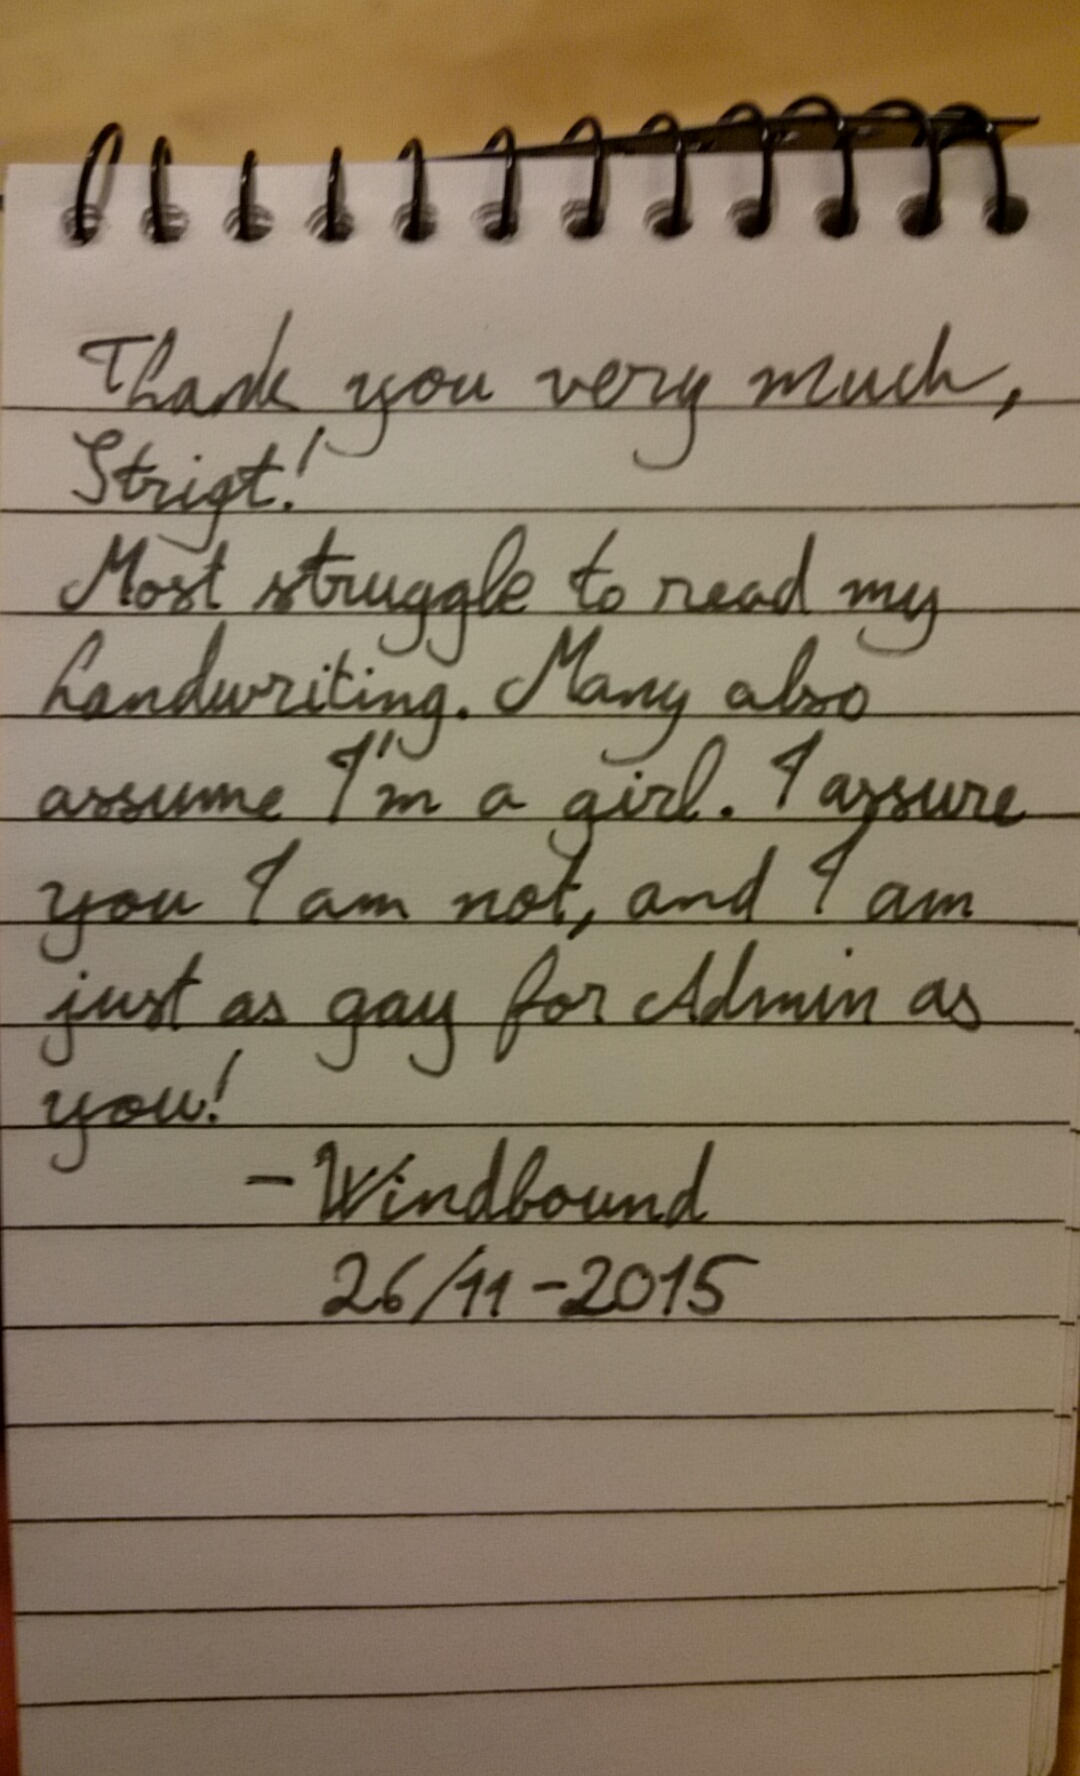 Thank you very much,
Strigt!
Most struggle to read my
handwriting. Many also
assume I'm a girl. I assure
you I am not, and I am
just as gay for Admin as
you!
- Windbound
26/11-2015